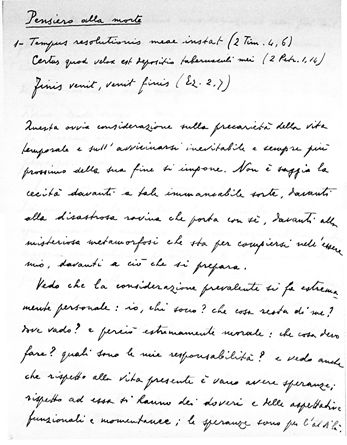 Pensiero alla morte
1- Tempus resolutionis meae instat (2 Tim. 4, 6)
Certus quod velox est depositio tabernaculi mei (2 Petr. 1, 14)
Finis venit, venit finis (Ez. 2, 7)
Questa ovvia considerazione sulla precarietà della vita
temporale e sull'avvicinarsi inevitabile e sempre più
prossimo della sua fine si impone. Non è saggia la
cecità davanti a tale immancabile sorte, davanti
alla disastrosa rovina che porta con sé, davanti alla
misteriosa metamorfosi che sta per compiersi nell'essere
mio, davanti a ciò che si prepara.
Vedo che la considerazione prevalente si fa estrema-
mente personale: io, chi sono? che cosa resta di me?
dove vado? e perciò estremamente morale: che cosa devo
fare? quali sono le mie responsabilità? e vedo anche
che rispetto alla vita presente è vano avere speranze;
rispetto ad essa si hanno dei doveri e delle aspettative
funzionali e momentanee; le speranze sono per l'al di là.